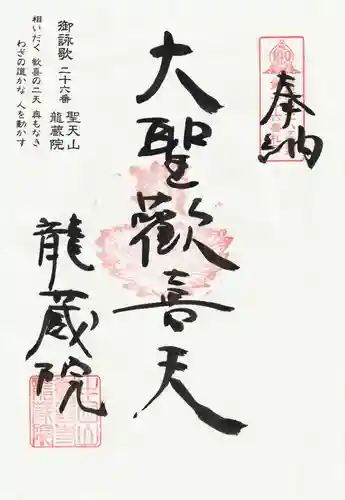 奉納
大聖歓喜天
龍蔵院
御詠歌 二十六番 聖天山
龍蔵院
相いだく 歓喜の二天 奥もなき
わざの誰かな 人を動かす